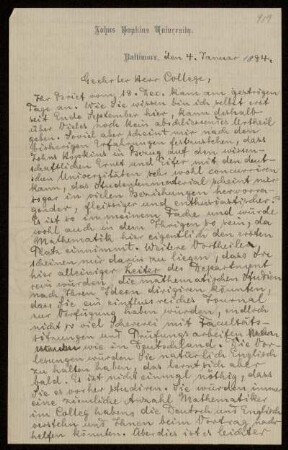 919
Johns Hopkins University.
Baltimore, den 4. Januar 1894.
Geehrter Herr College,
Ihr Brief vom 19. Dec. kam am gestrigen
Tage an. Wie Sie wissen bin ich selbst erst
seit Ende September hier, kann deshalb
über Vieles noch kein abschliessendes Urtheil
geben. Soviel aber scheint mir nach den
bisherigen Erfahrungen festzustehen, dass
Johns Hopkins in Bezug auf den wissen-
schaftlichen Ernst und Eifer mit den deut-
schen Universitäten sehr wohl concurriren
kann, das Studentenmaterial scheint mir
sogar in vielen Beziehungen hervorra-
gender, fleissiger und enthusiastischer.
So ist es in meinem Fache und würde
wohl auch in dem Ihrigen so sein, da
Mathematik hier eigentlich den ersten
Platz einnimmt. Weitere Vortheile
scheinen mir darin zu liegen, dass Sie
hier alleiniger Leiter des Department
sein würden, die mathematischen Studien
nach Ihren Ideen dirigiren könnten,
dass Sie ein einflussreiches Journal
zur Verfügung haben würden, endlich
nicht so viel Schererei mit Facultäts-
sitzungen und Prüfungsarbeiten haben
wie in Deutschland. Die Vor-
lesungen würden Sie natürlich Englisch
zu halten haben, das lernt sich aber
bald. Es ist nicht einmal nöthig, dass
Sie es vorher studiren. Sie würden immer
eine ziemliche Anzahl Mathematiker
im Colleg haben, die Deutsch und Englisch
verstehen und Ihnen beim Vortrag nach-
helfen könnten. Überdies ist es leichter